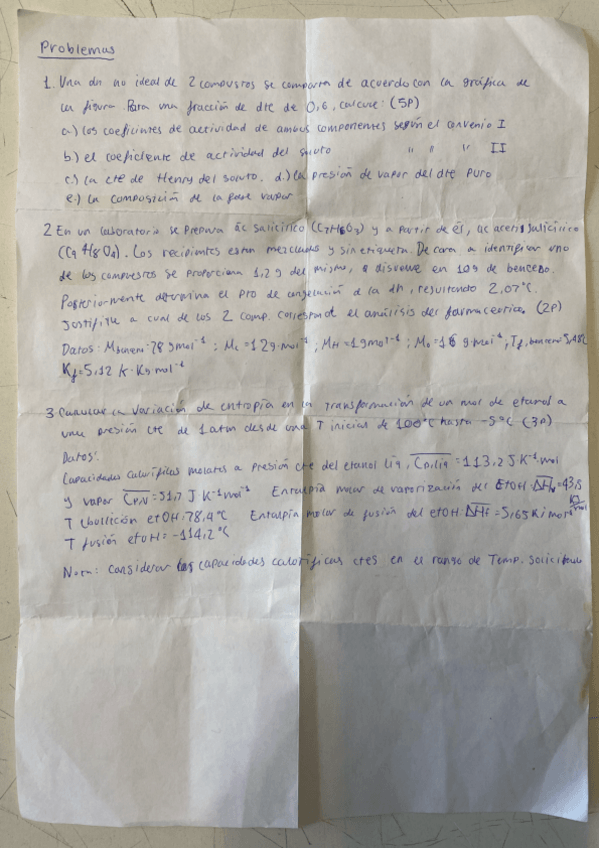 Problemas
1. Una dn no ideal de 2 compustos se comporta de acuerdo con la gráfica de
la figura. Para una fracción de dte de 0,6, calcule: (5P)
a) los coeficientes de actividad de ambos componentes según el convenio I
b) el coeficiente de actividad del soluto " " " II
c) la cte de Henry del soluto, d.) la presión de vapor del dte puro
e) la composición de la fase vapor
2 En un laboratorio se prepara ác salicírico (C7H6O3) y a partir de él, ác acetilsalicírico
(C9H8O4). Los recipientes estan mezclados y sin etiqueta. De cara a identificar uno
de los compuestos se proporciona 1,2 g del mismo, disuelve en 10 g de benceno.
Posteriormente determina el pto de congelación de la dn, resultando 2,07°C.
Justifique a cual de los 2 comp. corresponde el análisis del farmaceutico. (2P)
Datos: Mbenceno=78 gmol⁻¹ ; Mc=12g·mol⁻¹ ; MH=1gmol⁻¹ ; Mo=16 g·mol⁻¹, Tf, benceno=5,48C
Kf=5,12 K·Kg mol⁻¹
3 Calcular la variación de entropía en la transformación de un mol de etanol a
una presión cte de 1 atm desde una T inicial de 100°C hasta -5°C (3P)
Datos:
Capacidades caloríficas molares a presión cte del etanol liq, Cp,liq=113,2 J K⁻¹mol
y vapor Cp,v=51,7 J K⁻¹mol⁻¹ Entalpía molar de vaporización del EtOH: ΔHv=43,5 KJ/mol
T ebullición etOH: 78,4°C Entalpía molar de fusión del etOH: ΔHf=5,65 KJ mol⁻¹
T fusión etOH=-114,2°C
Nota: considerar las capacidades caloríficas ctes en el rango de Temp. solicitado